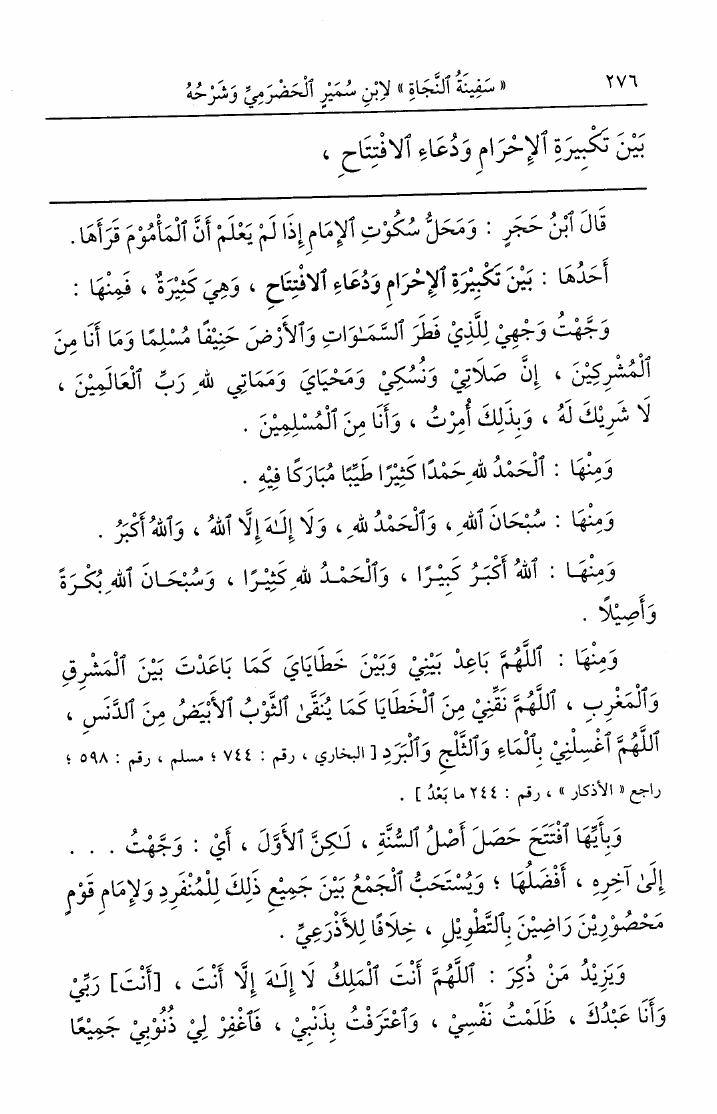 ٢٧٦ « سَفِينَةُ ٱلنَّجَاةِ » لِابْنِ سُمَيْرٍ ٱلْحَضْرَمِيِّ وَشَرْحُهُ
بَيْنَ تَكْبِيرَةِ ٱلإِحْرَامِ وَدُعَاءِ ٱلافْتِتَاحِ ،
قَالَ ٱبْنُ حَجَرٍ : وَمَحَلُّ سُكُوْتِ ٱلإِمَامِ إِذَا لَمْ يَعْلَمْ أَنَّ ٱلْمَأْمُوْمَ قَرَأَهَا .
أَحَدُهَا : بَيْنَ تَكْبِيْرَةِ ٱلإِحْرَامِ وَدُعَاءِ ٱلافْتِتَاحِ ، وَهِيَ كَثِيْرَةٌ ، فَمِنْهَا :
وَجَّهْتُ وَجْهِيْ لِلَّذِيْ فَطَرَ ٱلسَّمَـٰوَاتِ وَٱلأَرْضَ حَنِيْفًا مُسْلِمًا وَمَا أَنَا مِنَ
ٱلْمُشْرِكِيْنَ ، إِنَّ صَلَاتِيْ وَنُسُكِيْ وَمَحْيَايَ وَمَمَاتِي للهِ رَبِّ ٱلْعَالَمِيْنَ ،
لَا شَرِيْكَ لَهُ ، وَبِذَلِكَ أُمِرْتُ ، وَأَنَا مِنَ ٱلْمُسْلِمِيْنَ .
وَمِنْهَا : ٱلْحَمْدُ للهِ حَمْدًا كَثِيْرًا طَيِّبًا مُبَارَكًا فِيْهِ .
وَمِنْهَا : سُبْحَانَ ٱللهِ ، وَٱلْحَمْدُ للهِ ، وَلَا إِلَـٰهَ إِلَّا ٱللهُ ، وَٱللهُ أَكْبَرُ .
وَمِنْهَـا : ٱللهُ أَكْبَـرُ كَبِيْـرًا ، وَٱلْحَمْـدُ للهِ كَثِيْـرًا ، وَسُبْحَـانَ ٱللهِ بُكْـرَةً
وَأَصِيْلًا .
وَمِنْهَا : ٱللَّهُمَّ بَاعِدْ بَيْنِيْ وَبَيْنَ خَطَايَايَ كَمَا بَاعَدْتَ بَيْنَ ٱلْمَشْرِقِ
وَٱلْمَغْرِبِ ، ٱللَّهُمَّ نَقِّنِيْ مِنَ ٱلْخَطَايَا كَمَا يُنَقَّىٰ ٱلثَّوْبُ ٱلأَبْيَضُ مِنَ ٱلدَّنَسِ ،
ٱللَّهُمَّ ٱغْسِلْنِيْ بِٱلْمَاءِ وَٱلثَّلْجِ وَٱلْبَرَدِ [ البخاري ، رقم : ٧٤٤ ؛ مسلم ، رقم : ٥٩٨ ؛
راجع « الأذكار » ، رقم : ٢٤٤ ما بَعْدُ ] .
وَبِأَيِّهَا ٱفْتَتَحَ حَصَلَ أَصْلُ ٱلسُّنَّةِ ، لَـٰكِنَّ ٱلأَوَّلَ ، أَيْ : وَجَّهْتُ . . .
إِلَىٰ آخِرِهِ ، أَفْضَلُهَا ؛ وَيُسْتَحَبُّ ٱلْجَمْعُ بَيْنَ جَمِيْعِ ذَلِكَ لِلْمُنْفَرِدِ وَلإِمَامِ قَوْمٍ
مَحْصُوْرِيْنَ رَاضِيْنَ بِٱلتَّطْوِيْلِ ، خِلَافًا لِلأَذْرَعِيِّ .
وَيَزِيْدُ مَنْ ذُكِرَ : ٱللَّهُمَّ أَنْتَ ٱلْمَلِكُ لَا إِلَـٰهَ إِلَّا أَنْتَ ، [أَنْتَ] رَبِّيْ
وَأَنَا عَبْدُكَ ، ظَلَمْتُ نَفْسِيْ ، وَٱعْتَرَفْتُ بِذَنْبِيْ ، فَٱغْفِرْ لِيْ ذُنُوْبِيْ جَمِيْعًا